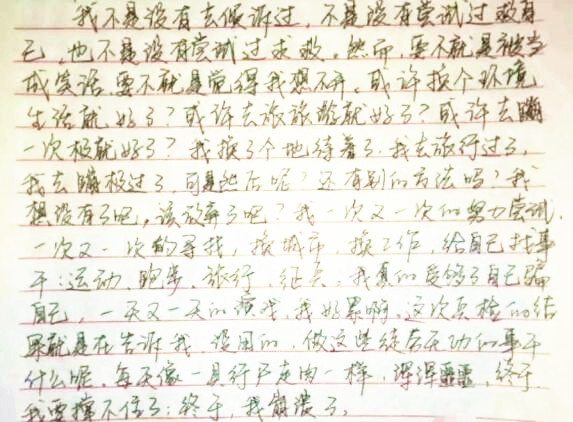 我不是没有去倾诉过，不是没有尝试过救自
己，也不是没有尝试过求救。然而，要不就是被当
成笑话，要不就是觉得我想不开。或许换个环境
生活就好了？或许去旅旅游就好了？或许去蹦
一次极就好了？我换了个地待着了，我去旅行过了，
我去蹦极过了，可是此后呢？还有别的方法吗？我
想没有了吧，该放弃了吧？我一次又一次的努力尝试，
一次又一次的寻找，换城市，换工作，给自己找事
干：运动、跑步、旅行、。我真的受够了自己骗
自己，一天又一天的演戏，我好累啊。这次点检的结
果就是在告诉我，没用的，做这些徒劳无功的事干
什么呢。每天像一具行尸走肉一样，浑浑噩噩，终于，
我要撑不住了；终于，我崩溃了。